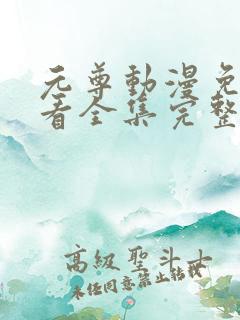 元尊動漫免
看全集完整
高級聖斗士
未經同意禁止轉載